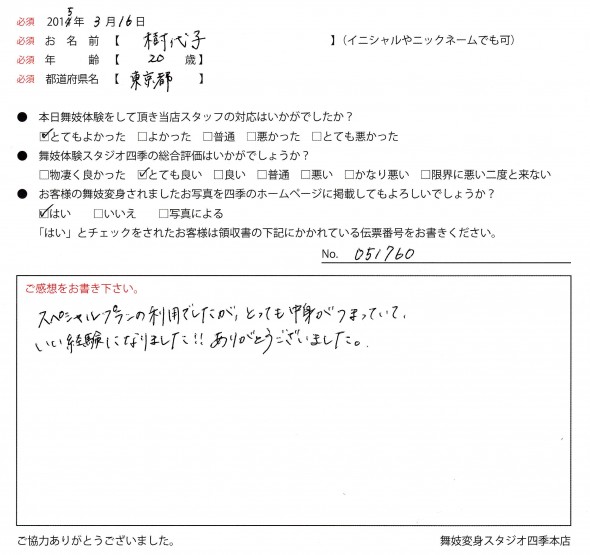 必須 2015年 3月16日
必須 お名前【 樹代子 】(イニシャルやニックネームでも可)
必須 年齢【 20 歳】
必須 都道府県名【 東京都 】
● 本日舞妓体験をして頂き当店スタッフの対応はいかがでしたか?
☑とてもよかった □よかった □普通 □悪かった □とても悪かった
● 舞妓体験スタジオ四季の総合評価はいかがでしょうか?
□物凄く良かった ☑とても良い □良い □普通 □悪い □かなり悪い □限界に悪い二度と来ない
● お客様の舞妓変身されましたお写真を四季のホームページに掲載してもよろしいでしょうか?
☑はい □いいえ □写真による
「はい」とチェックをされたお客様は領収書の下記にかかれている伝票番号をお書きください。
No. 051760
ご感想をお書き下さい。
スペシャルプランの利用でしたが、とっても中身がつまっていて、
いい経験になりました!! ありがとうございました。
ご協力ありがとうございました。 舞妓変身スタジオ四季本店